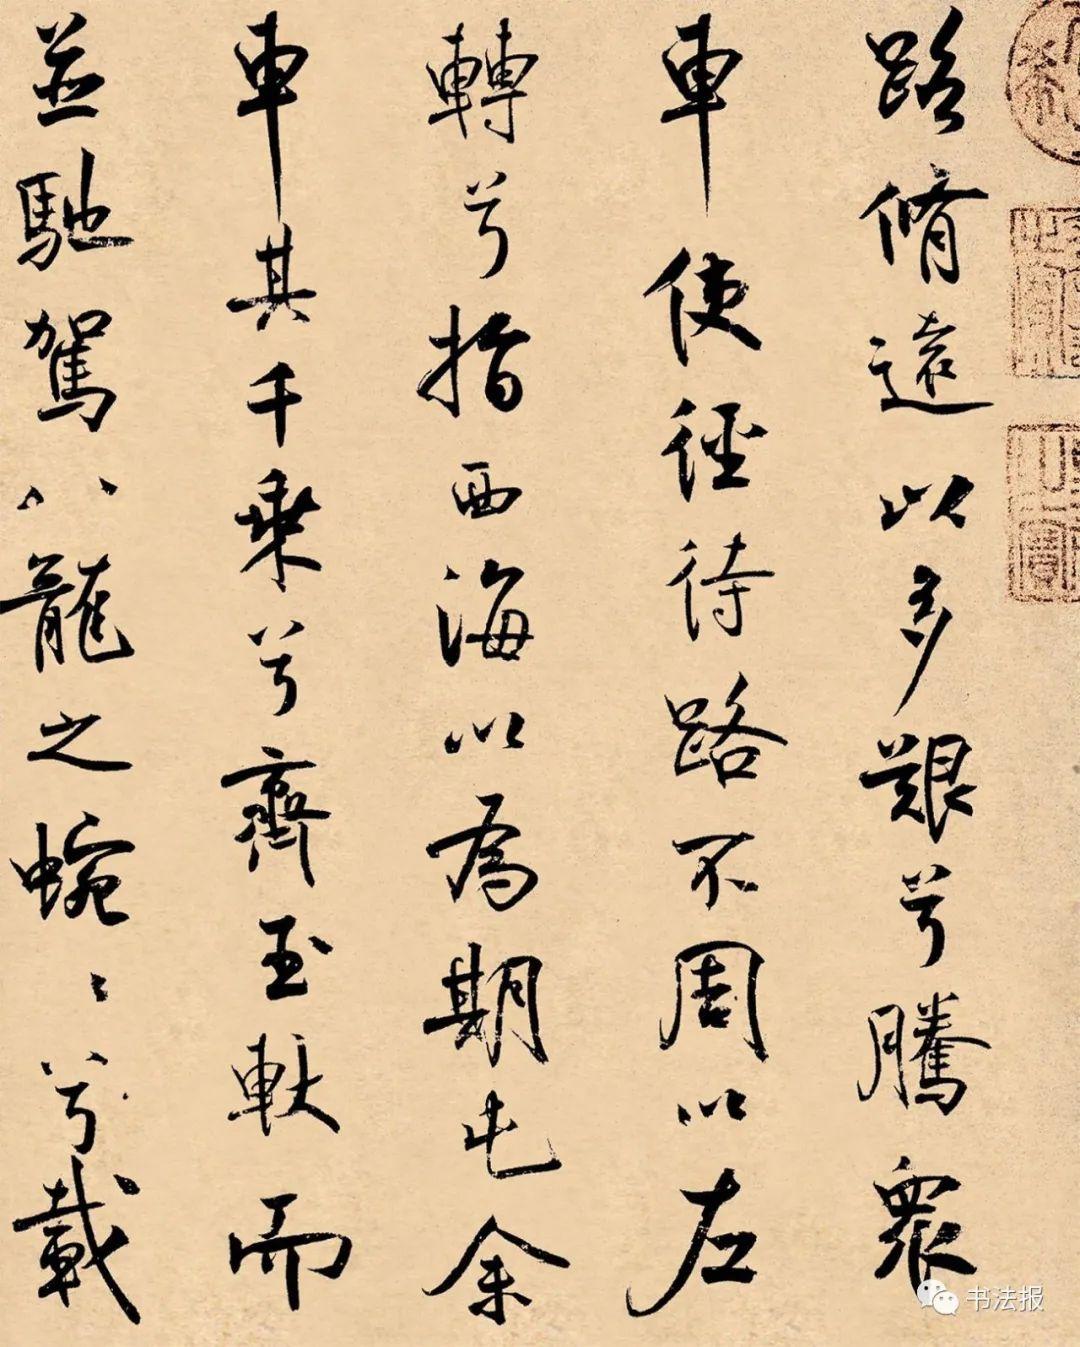 路脩遠以多艱兮騰眾
車使徑待路不周以左
轉兮指西海以為期屯余
車其千乘兮齊玉軑而
並馳駕八龍之蜿〻兮載
书法报